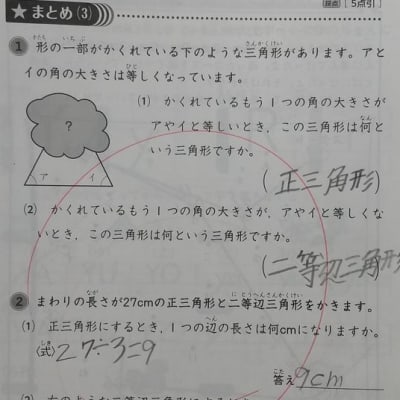 ★まとめ(3)
[5点引]
1 形の一部がかくれている下のような三角形があります。アと
イの角の大きさは等しくなっています。
(1) かくれているもう1つの角の大きさが
アやイと等しいとき,この三角形は何と
いう三角形ですか。
?
ア イ
(正三角形)
(2) かくれているもう1つの角の大きさが,アやイと等しくな
いとき,この三角形は何という三角形ですか。
(二等辺三角形
2 まわりの長さが27cmの正三角形と二等辺三角形をかきます。
(1) 正三角形にするとき,1つの辺の長さは何cmになりますか。
(式) 27÷3=9
答え 9cm